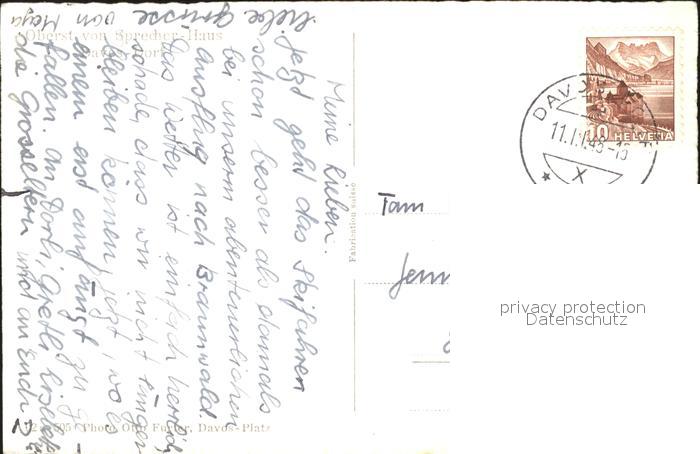 Oberst von Sprecher-Haus
Davos-Dorf
Meine Lieben.
Jetzt geht das Skifahren
schon besser als damals
bei unserm abenteuerlichen
Ausflug nach Braunwald.
Das Wetter ist einfach herrlich
schade, dass wir nicht länger
bleiben können, jetzt, wo es
einem erst anfängt zu ge-
fallen. An Dorli, Gretli, Liselek
die Grosseltern und an Euch
liebe Grüsse von
Fabrication suisse
Photo Otto Furter, Davos-Platz
Fam
Jenn
10 HELVETIA
DAVOS
11.I.
X
privacy protection
Datenschutz